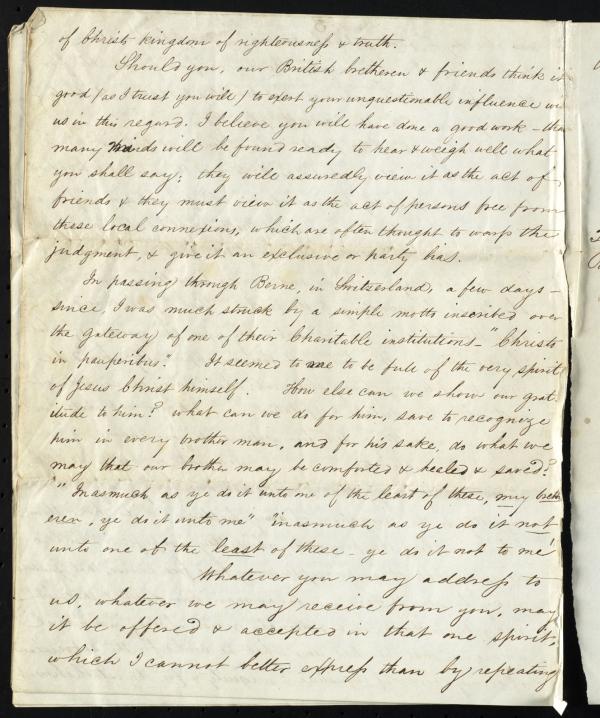 of Christs kingdom of righteousness & truth.
Should you, our British bretheren & friends think it
good (as I trust you will) to exert your unquestionable influence
us in this regard. I believe you will have done a good work – that
many minds will be found ready to hear & weigh well what
you shall say; they will assuredly view it as the act of
friends & they must view it as the act of persons free from
these local connexions, which are often thought to warp the
judgment, & give it an exclusive or party bias.
In passing through Berne, in Switzerland, a few days –
since, I was much struck by a simple motto inscribed over
the gateway of one of their Charitable institutions – "Christo
in pauperibus". It seemed to me to be full of the very spirit
of Jesus Christ himself. How else can we show our grat-
itude to him? what can we do for him, save to recognize
him in every brother man, and for his sake, do what we
may that our brother may be comforted & healed & saved?
"Inasmuch as ye do it unto one of the least of these, my breth
eren, ye do it unto me" "inasmuch as ye do it not
unto one of the least of these – ye do it not to me"
Whatever you may address to
us, whatever we may receive from you, may
it be offered & accepted in that one spirit,
which I cannot better express than by repeating